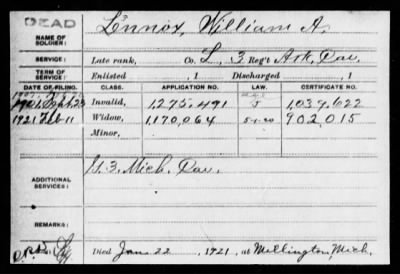 DEAD
NAME OF SOLDIER: Lennox, William A.
SERVICE: Late rank, Co. L, 3 Reg't Ark. Cav.
TERM OF SERVICE: Enlisted , 1 Discharged , 1
DATE OF FILING. CLASS. APPLICATION NO. LAW. CERTIFICATE NO.
1901 Sept. 23 Invalid, 1,275,491 1,039,622
1921 Feb 11 Widow, 1,170,064 902,015
Minor,
ADDITIONAL SERVICES: G. 3, Mich. Cav.
REMARKS:
Died Jan. 22 , 1921, at Millington, Mich.